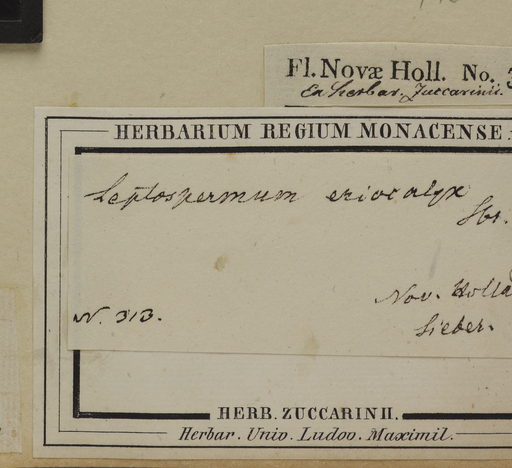 Fl. Novæ Holl. No. 3
Ex herbar. Zuccarinii.
HERBARIUM REGIUM MONACENSE
Leptospermum eriocalyx
Sbr.
Nov. Holla
N. 313.
Sieber.
HERB. ZUCCARINII.
Herbar. Univ. Ludov. Maximil.